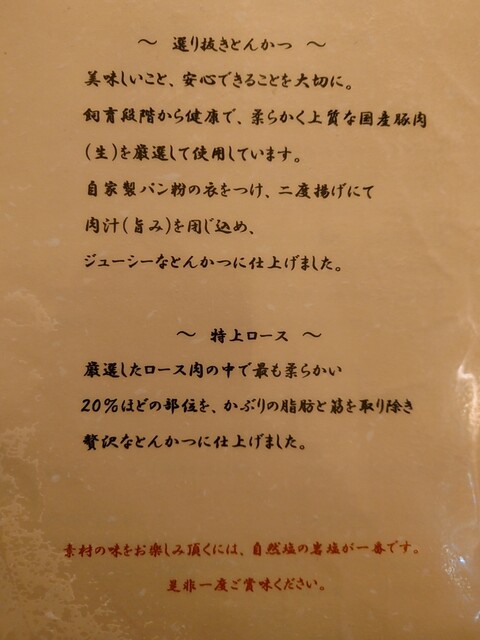 〜 選り抜きとんかつ 〜
美味しいこと、安心できることを大切に。
飼育段階から健康で、柔らかく上質な国産豚肉
(生)を厳選して使用しています。
自家製パン粉の衣をつけ、二度揚げにて
肉汁(旨み)を閉じ込め、
ジューシーなとんかつに仕上げました。
〜 特上ロース 〜
厳選したロース肉の中で最も柔らかい
20%ほどの部位を、かぶりの脂肪と筋を取り除き
贅沢なとんかつに仕上げました。
素材の味をお楽しみ頂くには、自然塩の岩塩が一番です。
是非一度ご賞味ください。